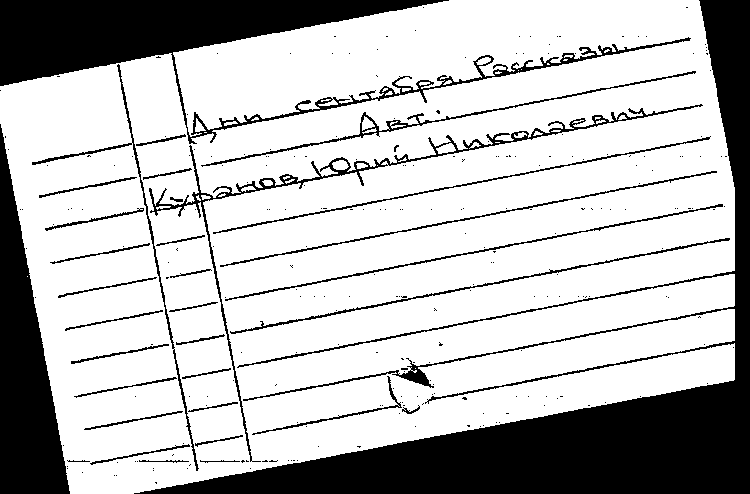 Дни сентября. Рассказы.
Авт.:
Куранов, Юрий Николаевич.